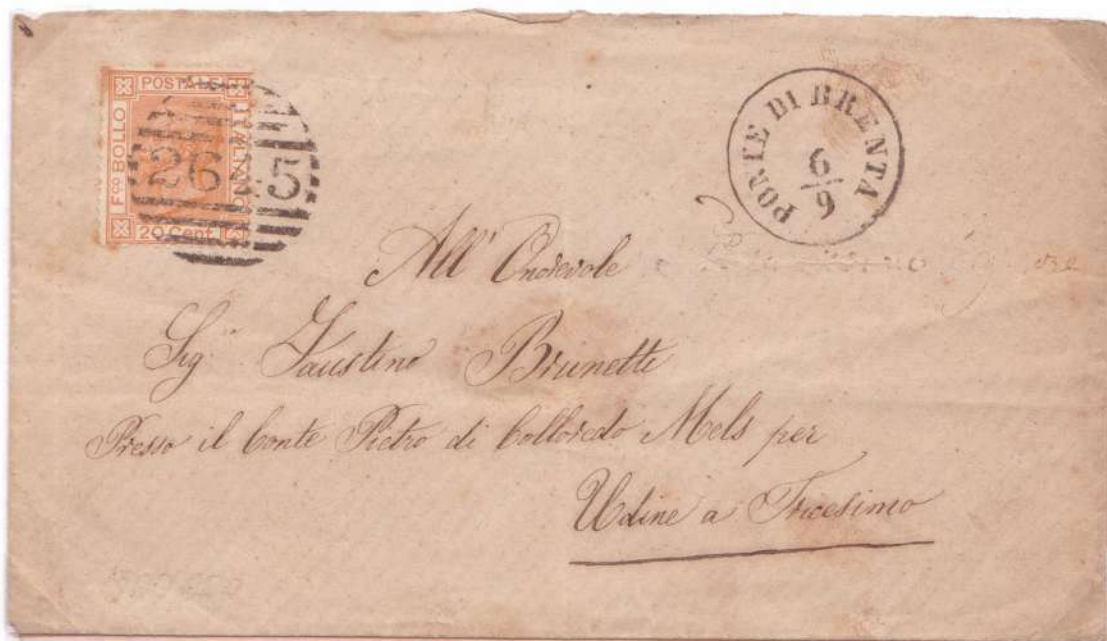 POSTALE
Fco BOLLO
20 Cent
26 5
PONTE DI BRENTA
6/9
All' Onorevole
Sig. Faustino Brunetti
Presso il Conte Pietro di Colloredo Mels per
Udine a Tricesimo